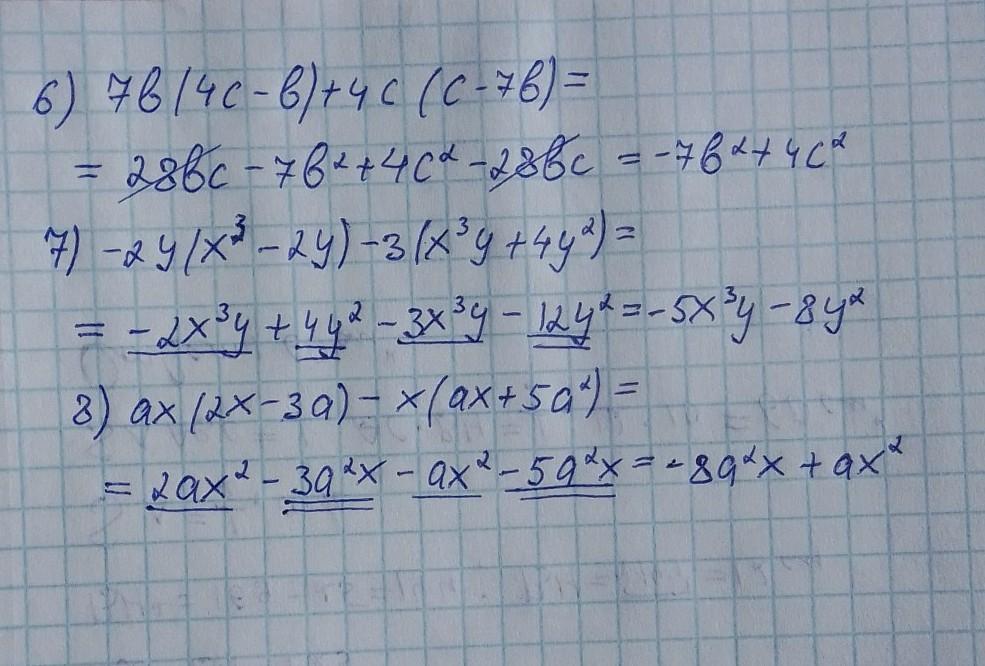 6) 7в(4с-в)+4с(с-7в)=
= 28вс - 7в²+4с² - 28вс = -7в²+4с²
7) -2y(x³-2y)-3(x³y+4y²)=
= -2x³y + 4y² - 3x³y - 12y² = -5x³y - 8y²
8) ax(2x-3a) - x(ax+5a²)=
= 2ax² - 3a²x - ax² - 5a²x = -8a²x + ax²